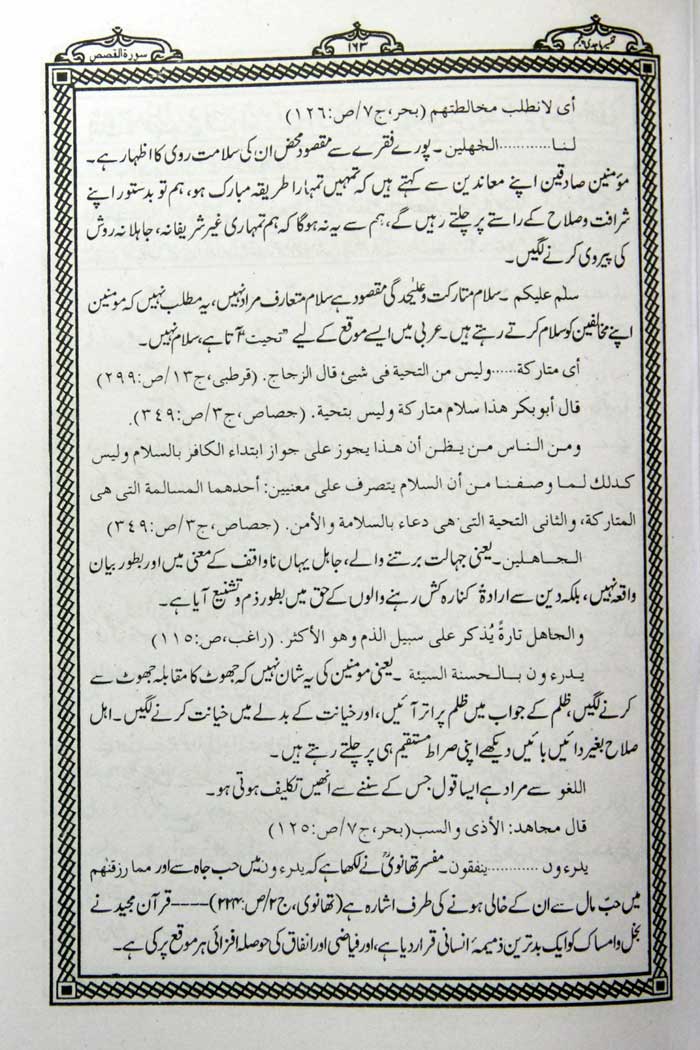 تفسیر ماجدی پنجم
۱۶۳
سورة القصص
أى لانطلب مخالطتهم (بحر، ج۷/ص:۱۲۶)
لنا............الجٰهلین۔ پورے فقرے سے مقصود محض ان کی سلامت روی کا اظہار ہے۔
مؤمنین صادقین اپنے معاندین سے کہتے ہیں کہ تمہیں تمہارا طریقہ مبارک ہو، ہم تو بدستور اپنے
شرافت وصلاح کے راستے پر چلتے رہیں گے، ہم سے یہ نہ ہوگا کہ ہم تمہاری غیر شریفانہ، جاہلانہ روش
کی پیروی کرنے لگیں۔
سلٰم علیکم۔ سلام متارکت وعلیٰحدگی مقصود ہے سلام متعارف مراد نہیں، یہ مطلب نہیں کہ مومنین
اپنے مخالفین کو سلام کرتے رہتے ہیں۔ عربی میں ایسے موقع کے لیے ”تحیت“ آتا ہے، سلام نہیں۔
أى متاركة......وليس من التحية فى شيئ قال الزجاج. (قرطبی، ج۱۳/ص:۲۹۹)
قال أبو بكر هذا سلام متاركة وليس بتحية. (جصاص، ج۳/ص:۳۴۹).
ومن الناس من يظن أن هذا يجوز على جواز ابتداء الكافر بالسلام وليس
كذلك لما وصفنا من أن السلام يتصرف على معنيين: أحدهما المسالمة التى هى
المتاركة، والثانى التحية التى هى دعاء بالسلامة والأمن. (جصاص، ج۳/ص:۳۴۹)
الجاهلین۔ یعنی جہالت برتنے والے، جاہل یہاں ناواقف کے معنی میں اور بطور بیان
واقعہ نہیں، بلکہ دین سے ارادۃً کنارہ کش رہنے والوں کے حق میں بطور ذم وتشنیع آیا ہے۔
والجاهل تارةً يُذكر على سبيل الذم وهو الأكثر. (راغب، ص:۱۱۵)
یدرءون بالحسنة السیئة۔ یعنی مومنین کی یہ شان نہیں کہ جھوٹ کا مقابلہ جھوٹ سے
کرنے لگیں، ظلم کے جواب میں ظلم پر اتر آئیں، اور خیانت کے بدلے میں خیانت کرنے لگیں۔ اہل
صلاح بغیر دائیں بائیں دیکھے اپنی صراط مستقیم ہی پر چلتے رہتے ہیں۔
اللغو سے مراد ہے ایسا قول جس کے سننے سے انھیں تکلیف ہوتی ہو۔
قال مجاهد: الأذى والسب (بحر، ج۷/ص:۱۲۵)
یدرءون............ینفقون۔ مفسر تھانویؒ نے لکھا ہے کہ یدرءون میں حب جاہ سے اور مما رزقنٰهم
میں حب مال سے ان کے خالی ہونے کی طرف اشارہ ہے (تھانوی، ج۲/ص:۲۲۴)----قرآن مجید نے
بخل وامساک کو ایک بدترین ذمیمۂ انسانی قرار دیا ہے، اور فیاضی اور انفاق کی حوصلہ افزائی ہر موقع پر کی ہے۔